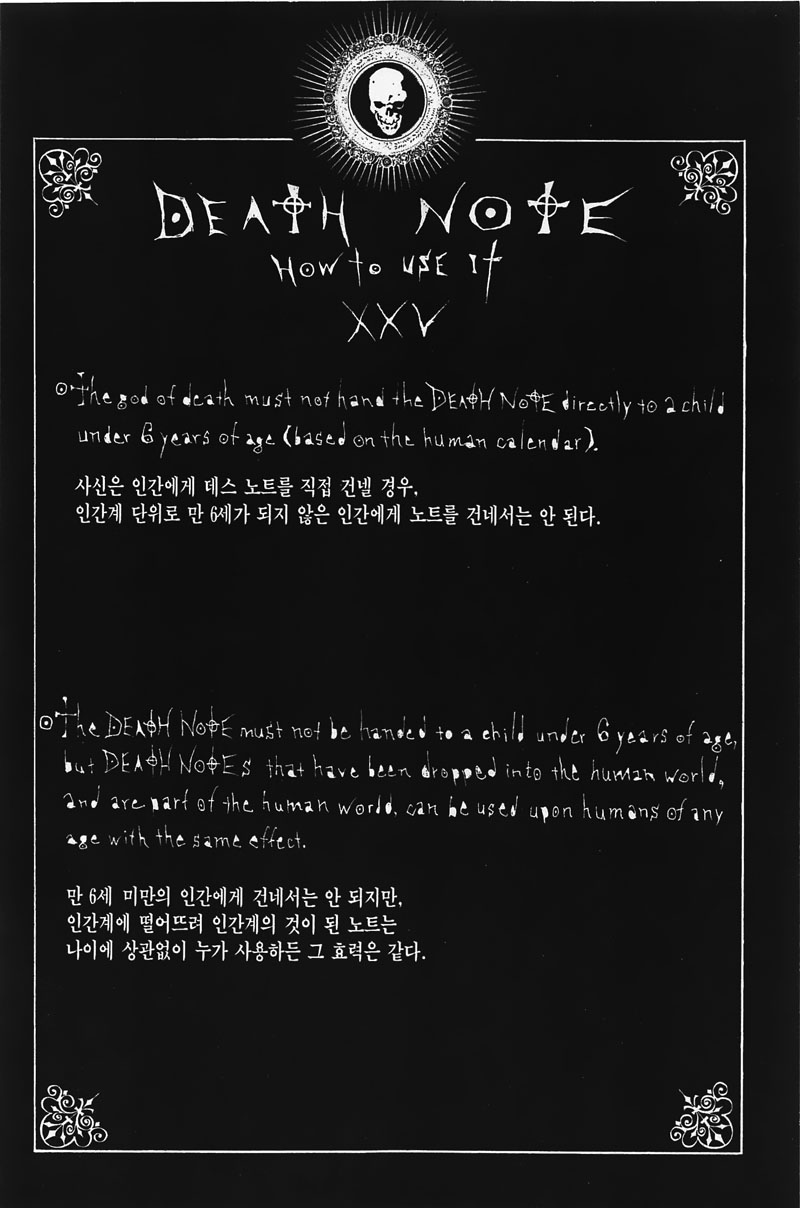 DEATH NOTE
HOW to USE It
XXV
The god of death must not hand the DEATH NOTE directly to a child
under 6 years of age (based on the human calendar).
사신은 인간에게 데스 노트를 직접 건넬 경우,
인간계 단위로 만 6세가 되지 않은 인간에게 노트를 건네서는 안 된다.
The DEATH NOTE must not be handed to a child under 6 years of age,
but DEATH NOTES that have been dropped into the human world,
and are part of the human world, can be used upon humans of any
age with the same effect.
만 6세 미만의 인간에게 건네서는 안 되지만,
인간계에 떨어뜨려 인간계의 것이 된 노트는
나이에 상관없이 누가 사용하든 그 효력은 같다.